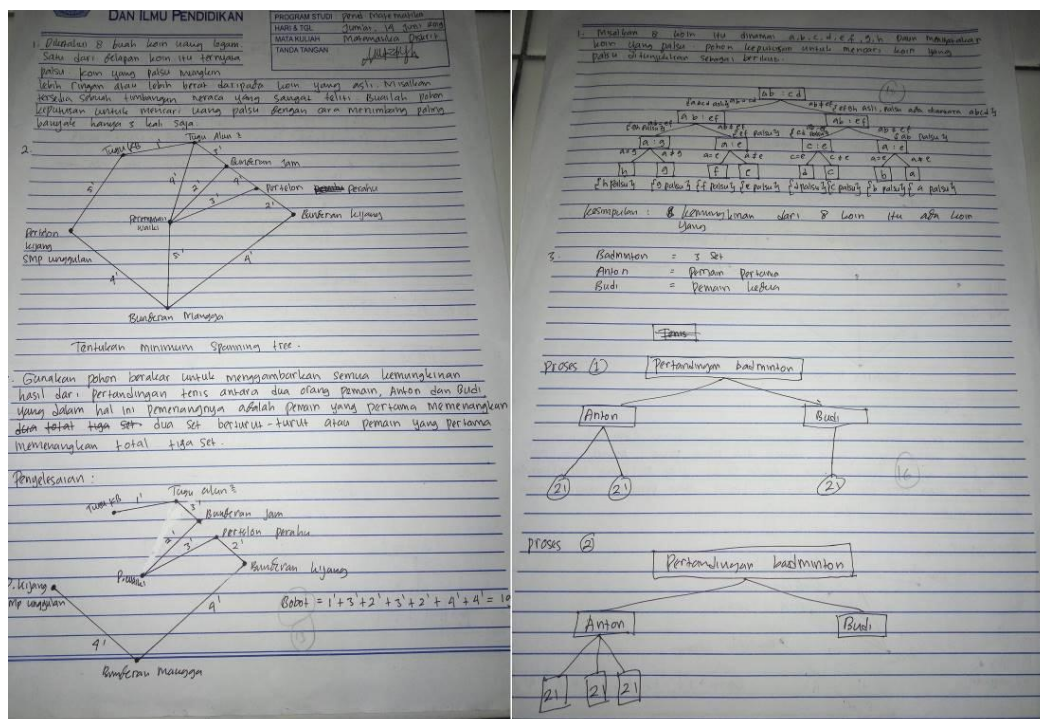 DAN ILMU PENDIDIKAN
PROGRAM STUDI Pend Matematika
HARI & TGL Jumat, 14 Juni 2019
MATA KULIAH Matematika Diskrit
TANDA TANGAN
1. Diketahui 8 buah koin uang logam.
Satu dari delapan koin itu ternyata
palsu. Koin yang palsu mungkin
lebih ringan atau lebih berat daripada koin yang asli. Misalkan
tersedia sebuah timbangan neraca yang sangat teliti. Buatlah pohon
keputusan untuk mencari uang palsu dengan cara menimbang paling
banyak hanya 3 kali saja.
2.
Tugu KB
1'
Tugu Alun2
3'
Bunderan Jam
5'
4'
2'
4'
3'
Pertelon
Perahu
2'
Bunderan Kijang
Pertelon
Kijang
SMP unggulan
5'
4'
4'
Bunderan Mangga
Tentukan minimum spanning tree.
. Gunakan pohon berakar untuk menggambarkan semua kemungkinan
hasil dari pertandingan tenis antara dua orang pemain, Anton dan Budi,
yang dalam hal ini pemenangnya adalah pemain yang pertama memenangkan
dua set berturut-turut atau pemain yang pertama
memenangkan total tiga set.
Penyelesaian :
Tugu KB
1'
Tugu alun2
3'
Bunderan Jam
2'
3'
Pertelon Perahu
2'
Bunderan Kijang
P. Kijang
SMP unggulan
4'
4'
Bobot = 1' + 3' + 2' + 3' + 2' + 4' + 4' = 19
Bunderan Mangga
1. Misalkan 8 koin itu dinamai a, b, c, d, e, f, g, h. Satu
koin yang palsu. Pohon keputusan untuk mencari koin yang
palsu ditunjukkan sebagai berikut.
ab : cd
ab = cd
ab ≠ cd
ab : ef
ab : ef
ab = ef
ab ≠ ef
ab = ef
ab ≠ ef
a : g
a : e
c : e
a : e
a=g
a≠g
a=e
a≠e
c=e
c≠e
a=e
a≠e
h
g
f
e
d
c
b
a
{h palsu} {g palsu} {f palsu} {e palsu} {d palsu} {c palsu} {b palsu} {a palsu}
Kesimpulan : 8 kemungkinan dari 8 koin itu ada koin
yang
3. Badminton = 3 Set
Anton = Pemain Pertama
Budi = Pemain kedua
Proses ①
Pertandingan badminton
Anton
Budi
21
21
21
16
Proses ②
Pertandingan badminton
Anton
Budi
21
21
21